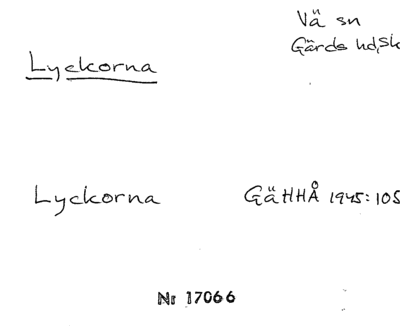 Vä sn
Lyckorna
Gärds hd, Sk
Lyckorna GäHHÅ 1945:105
Nr 17066